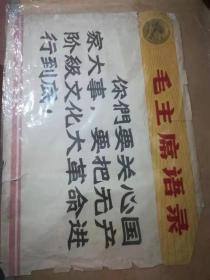 毛主席语录
你們要关心国
家大事，要把无产
阶級文化大革命进
行到底！